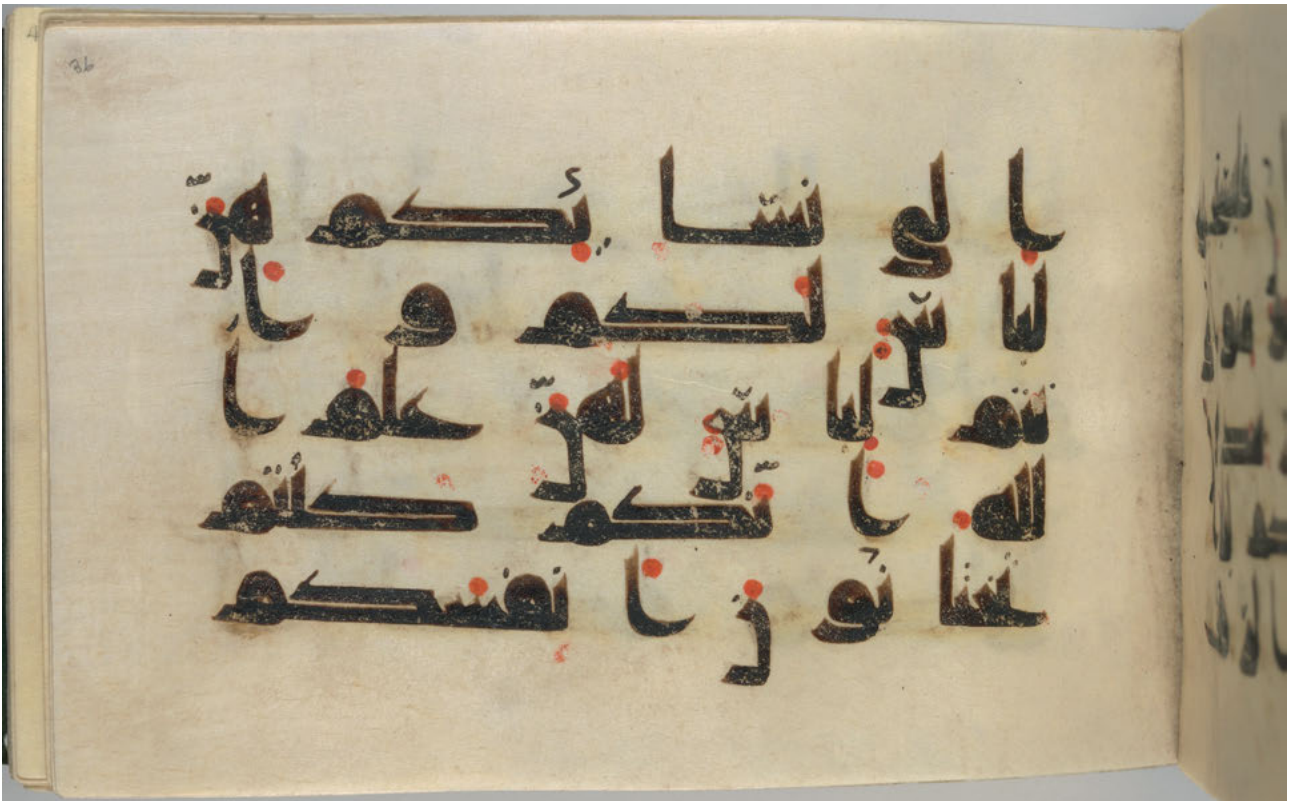 36
ا لى نسا ئكم هن
لباس لكم و ا
نتم لباس لهن علم ا
لله ا نكم كنتم
تختا نو ن ا نفسكم